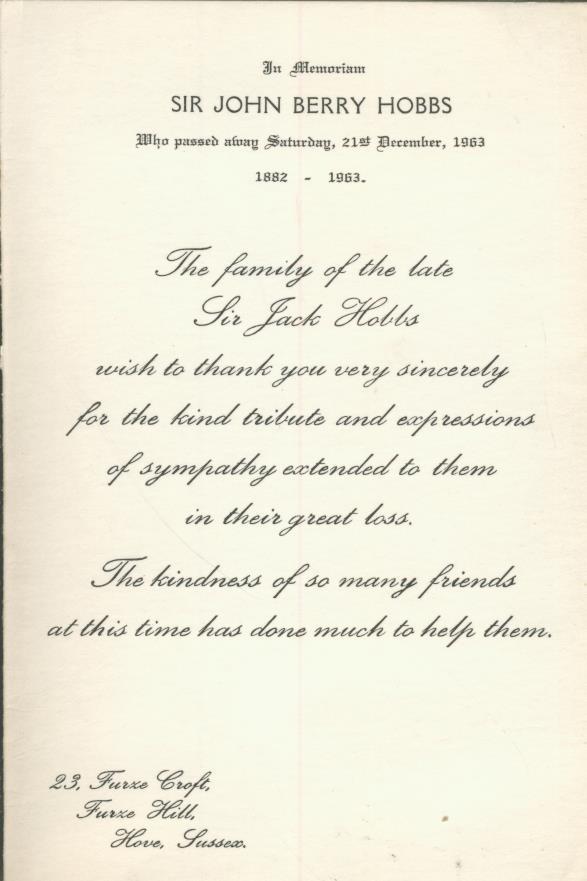 In Memoriam
SIR JOHN BERRY HOBBS
Who passed away Saturday, 21st December, 1963
1882 - 1963.
The family of the late
Sir Jack Hobbs
wish to thank you very sincerely
for the kind tribute and expressions
of sympathy extended to them
in their great loss.
The kindness of so many friends
at this time has done much to help them.
23, Furze Croft,
Furze Hill,
Hove, Sussex.